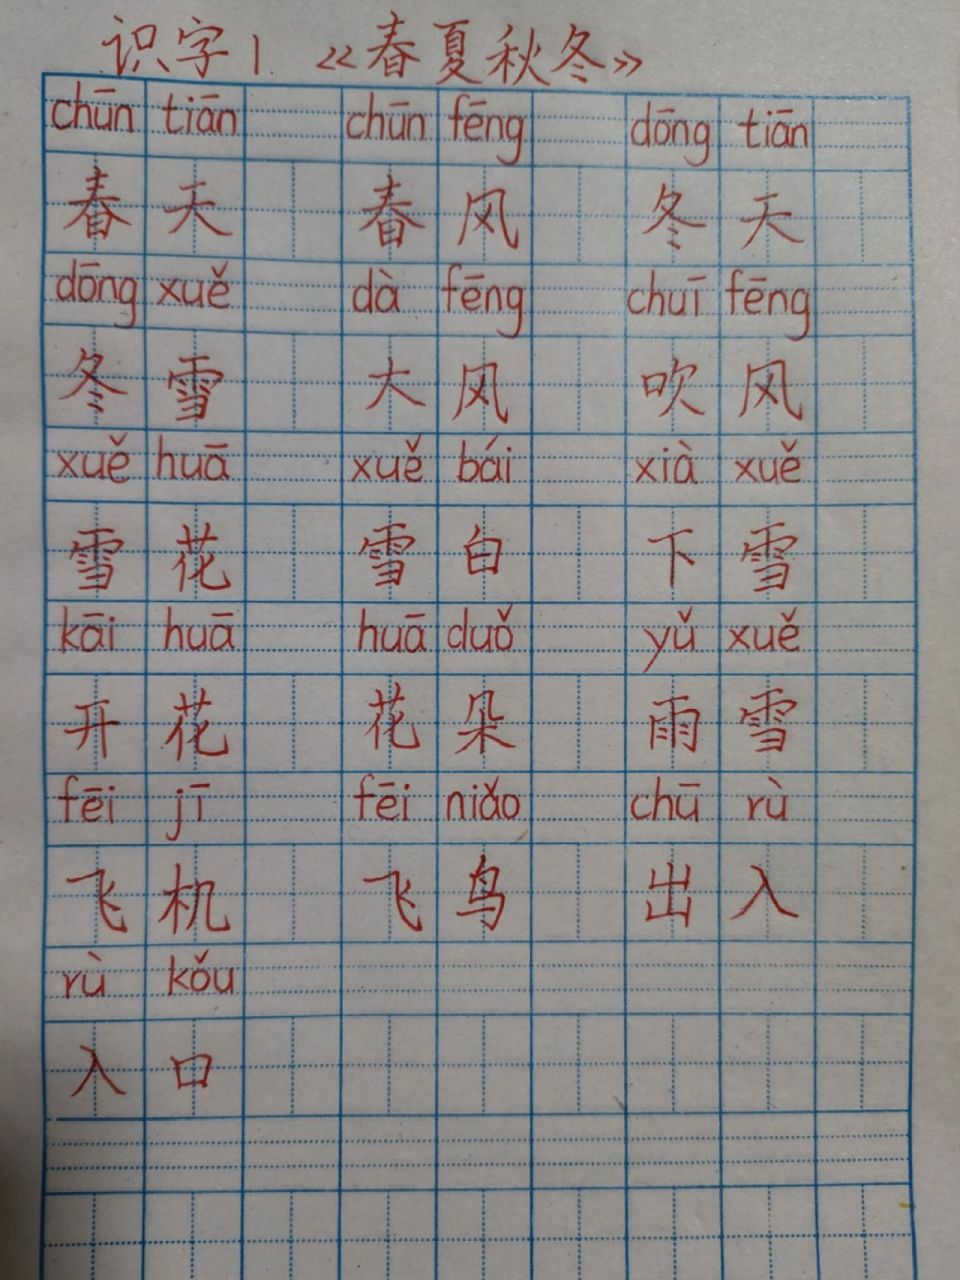 识字1 《春夏秋冬》
chūn tiān chūn fēng dōng tiān
春天 春风 冬天
dōng xuě dà fēng chuī fēng
冬雪 大风 吹风
xuě huā xuě bái xià xuě
雪花 雪白 下雪
kāi huā huā duǒ yǔ xuě
开花 花朵 雨雪
fēi jī fēi niǎo chū rù
飞机 飞鸟 出入
rù kǒu
入口